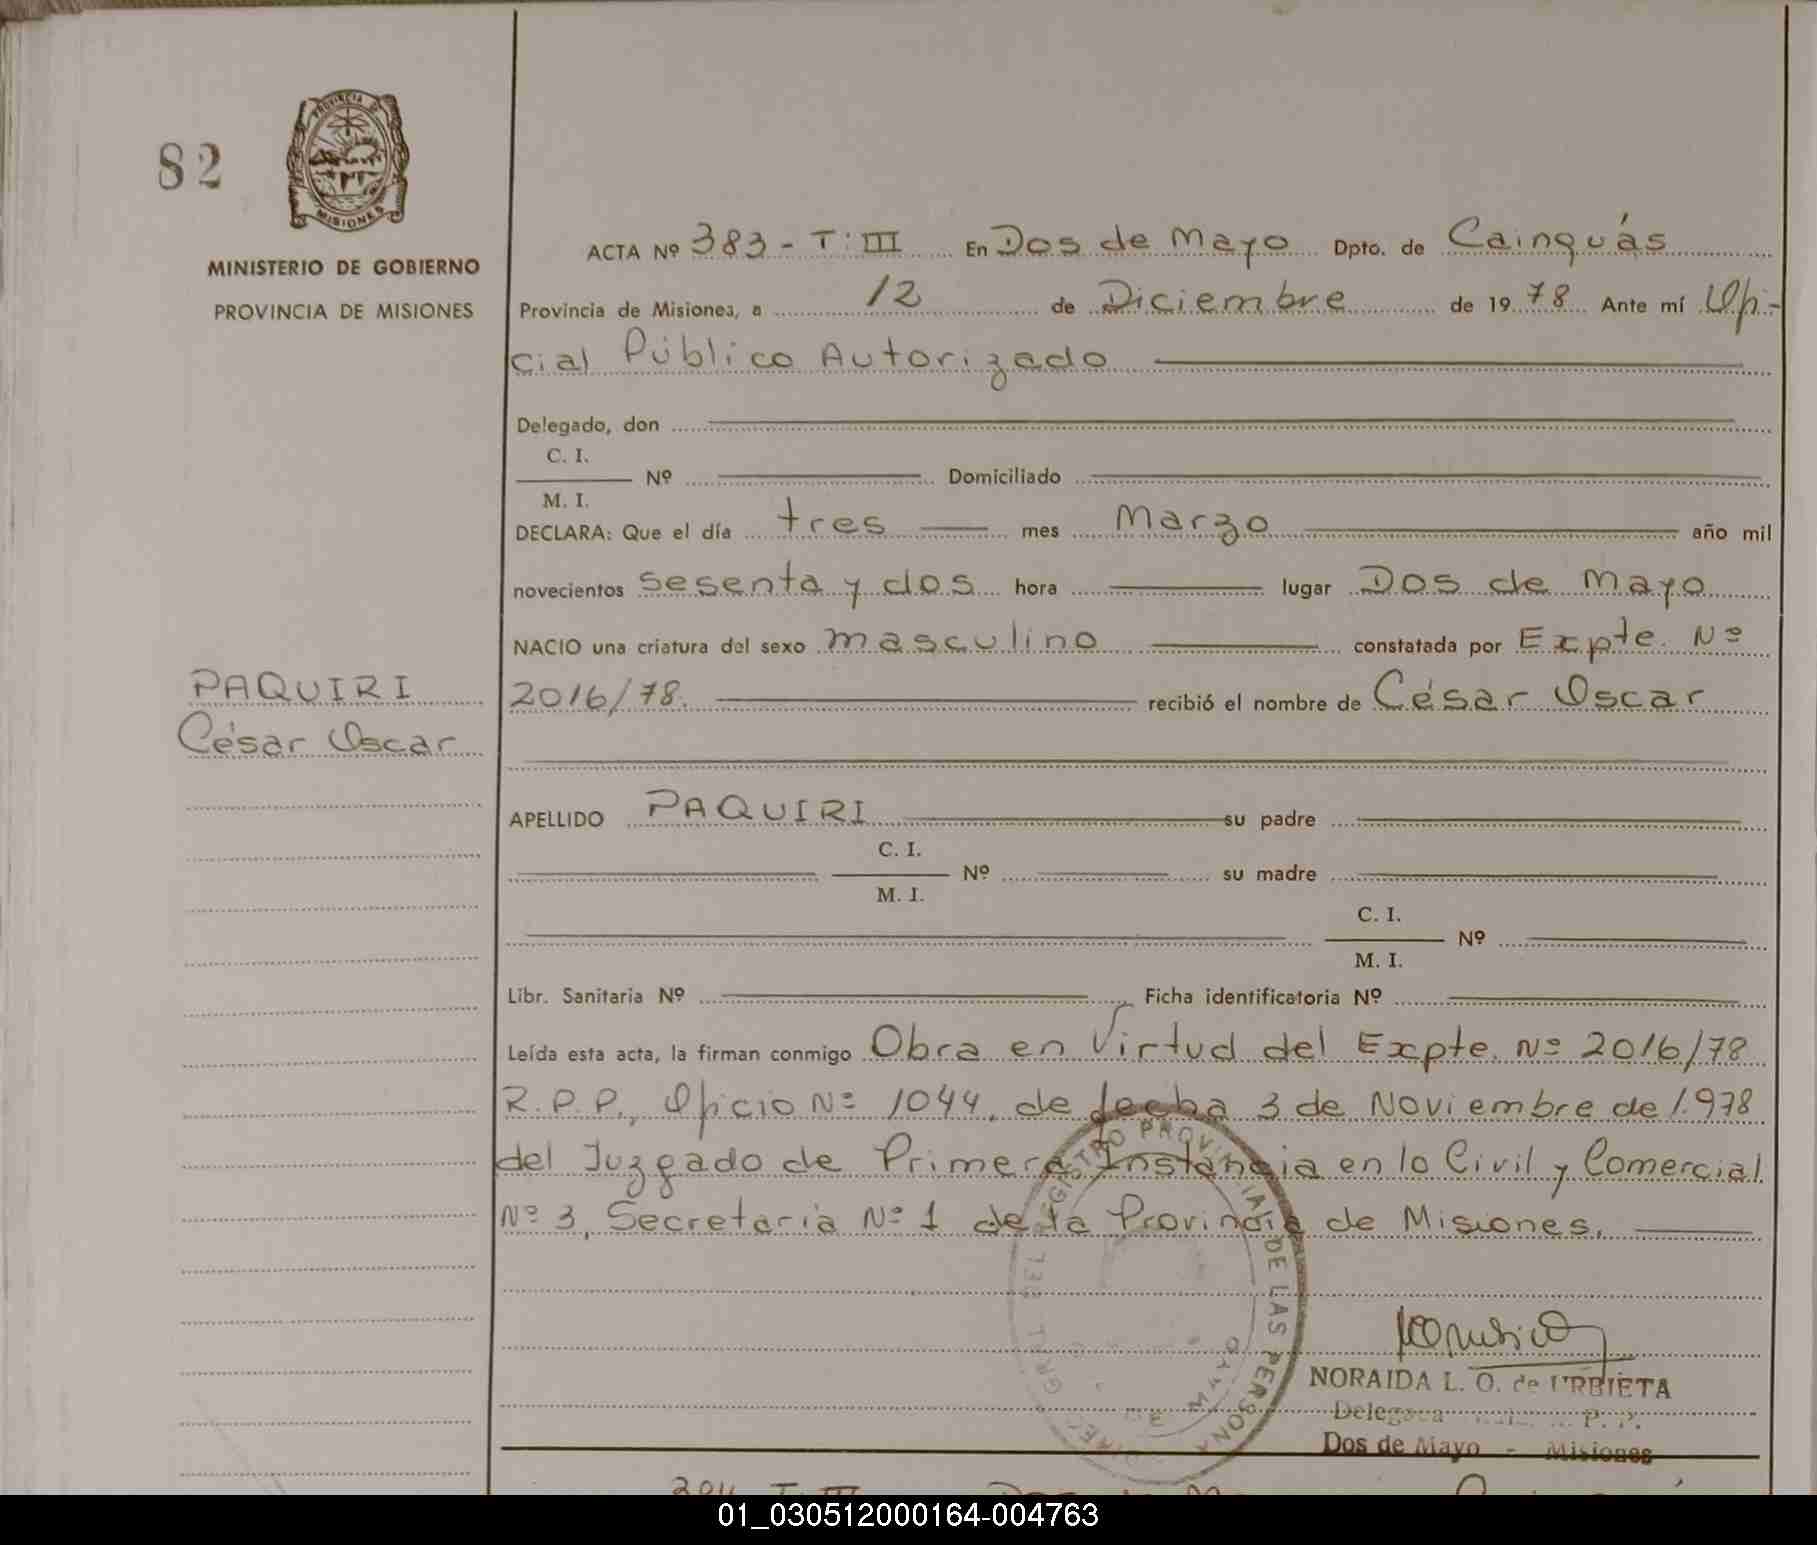 82
PROVINCIA DE
MISIONES
MINISTERIO DE GOBIERNO
PROVINCIA DE MISIONES
ACTA Nº 383 - T: III En Dos de Mayo Dpto. de Cainguás
Provincia de Misiones, a 12 de Diciembre de 1978 Ante mí Ofi-
cial Público Autorizado
Delegado, don
C. I.
Nº Domiciliado
M. I.
DECLARA: Que el día tres mes Marzo año mil
novecientos sesenta y dos hora lugar Dos de Mayo
NACIO una criatura del sexo masculino constatada por Expte. Nº
PAQUIRI
César Oscar
2016/78. recibió el nombre de César Oscar
APELLIDO PAQUIRI su padre
C. I.
Nº su madre
M. I.
C. I.
Nº
M. I.
Libr. Sanitaria Nº Ficha identificatoria Nº
Leída esta acta, la firman conmigo Obra en Virtud del Expte. Nº 2016/78
R.P.P., Oficio Nº 1044, de fecha 3 de Noviembre de 1.978
del Juzgado de Primera Instancia en lo Civil y Comercial
Nº 3, Secretaría Nº 1 de la Provincia de Misiones.
REGISTRO PROVINCIAL DE LAS PERSONAS
DE MAYO
NORAIDA L. O. de URBIETA
Delegada P. P.
Dos de Mayo - Misiones
01_030512000164-004763